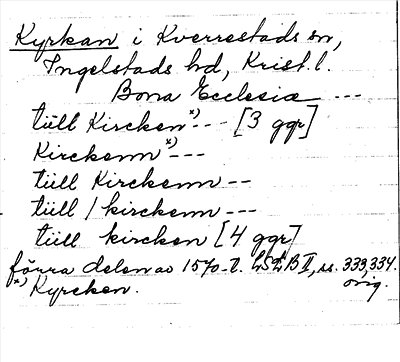 Kyrkan i Kverrestads sn,
Ingelstads hd, Krist. l.
Bona Ecclesiæ ---
tiill Kircken *) --- [3 ggr]
Kirckenn *) ---
tiill Kirckenn --
tiill / kirckenn ---
tiill kircken [4 ggr]
förra delen av 1570-t. LSÆB II, ss. 333, 334.
*) Kyrcken. orig.